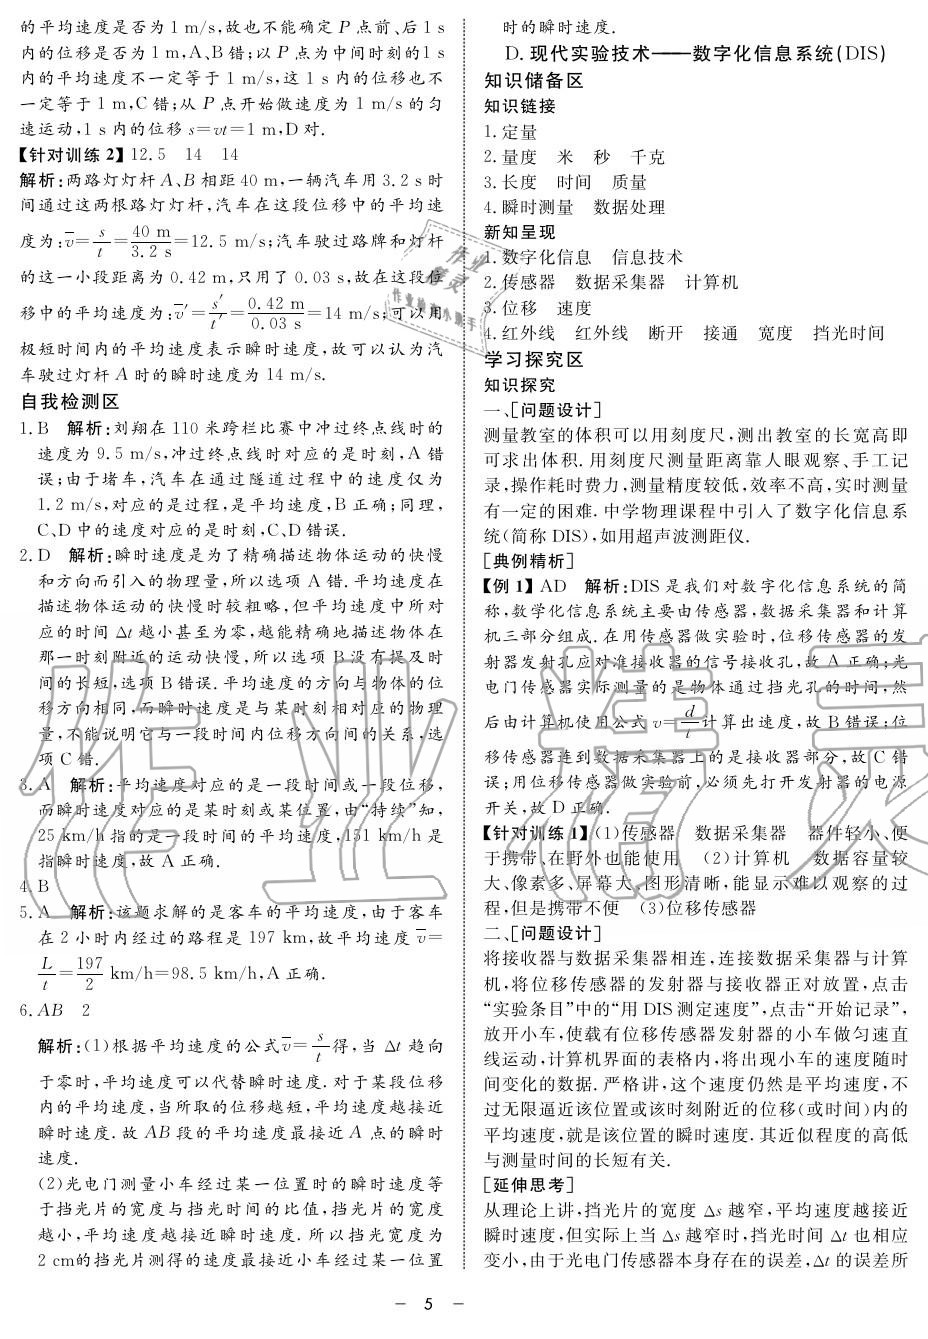 的平均速度是否为1 m/s,故也不能确定P点前、后1 s
内的位移是否为1 m,A、B错;以P点为中间时刻的1 s
内的平均速度不一定等于1 m/s,这1 s内的位移也不
一定等于1 m,C错;从P点开始做速度为1 m/s的匀
速运动,1 s内的位移s=vt=1 m,D对.
【针对训练2】12.5 14 14
解析:两路灯灯杆A、B相距40 m,一辆汽车用3.2 s时
间通过这两根路灯灯杆,汽车在这段位移中的平均速
度为:v̄=s/t=40 m/3.2 s=12.5 m/s;汽车驶过路牌和灯杆
的这一小段距离为0.42 m,只用了0.03 s,故在这段位
移中的平均速度为:v̄′=s′/t′=0.42 m/0.03 s=14 m/s;可以用
极短时间内的平均速度表示瞬时速度,故可以认为汽
车驶过灯杆A时的瞬时速度为14 m/s.
自我检测区
1.B 解析:刘翔在110米跨栏比赛中冲过终点线时的
速度为9.5 m/s,冲过终点线时对应的是时刻,A错
误;由于堵车,汽车在通过隧道过程中的速度仅为
1.2 m/s,对应的是过程,是平均速度,B正确;同理,
C、D中的速度对应的是时刻,C、D错误.
2.D 解析:瞬时速度是为了精确描述物体运动的快慢
和方向而引入的物理量,所以选项A错.平均速度在
描述物体运动的快慢时较粗略,但平均速度中所对
应的时间Δt越小甚至为零,越能精确地描述物体在
那一时刻附近的运动快慢,所以选项B没有提及时
间的长短,选项B错误.平均速度的方向与物体的位
移方向相同,而瞬时速度是与某时刻相对应的物理
量,不能说明它与一段时间内位移方向间的关系,选
项C错.
3.A 解析:平均速度对应的是一段时间或一段位移,
而瞬时速度对应的是某时刻或某位置,由“持续”知,
25 km/h指的是一段时间的平均速度,151 km/h是
指瞬时速度,故A正确.
4.B
5.A 解析:该题求解的是客车的平均速度,由于客车
在2小时内经过的路程是197 km,故平均速度v̄=
L/t=197/2 km/h=98.5 km/h,A正确.
6.AB 2
解析:(1)根据平均速度的公式v̄=s/t得,当Δt趋向
于零时,平均速度可以代替瞬时速度.对于某段位移
内的平均速度,当所取的位移越短,平均速度越接近
瞬时速度.故AB段的平均速度最接近A点的瞬时
速度.
(2)光电门测量小车经过某一位置时的瞬时速度等
于挡光片的宽度与挡光时间的比值,挡光片的宽度
越小,平均速度越接近瞬时速度.所以挡光宽度为
2 cm的挡光片测得的速度最接近小车经过某一位置
时的瞬时速度.
D.现代实验技术——数字化信息系统(DIS)
知识储备区
知识链接
1.定量
2.量度 米 秒 千克
3.长度 时间 质量
4.瞬时测量 数据处理
新知呈现
1.数字化信息 信息技术
2.传感器 数据采集器 计算机
3.位移 速度
4.红外线 红外线 断开 接通 宽度 挡光时间
学习探究区
知识探究
一、[问题设计]
测量教室的体积可以用刻度尺,测出教室的长宽高即
可求出体积.用刻度尺测量距离靠人眼观察、手工记
录,操作耗时费力,测量精度较低,效率不高,实时测量
有一定的困难.中学物理课程中引入了数字化信息系
统(简称DIS),如用超声波测距仪.
[典例精析]
【例1】AD 解析:DIS是我们对数字化信息系统的简
称,数学化信息系统主要由传感器,数据采集器和计算
机三部分组成.在用传感器做实验时,位移传感器的发
射器发射孔应对准接收器的信号接收孔,故A正确;光
电门传感器实际测量的是物体通过挡光孔的时间,然
后由计算机使用公式v=d/t计算出速度,故B错误;位
移传感器连到数据采集器上的是接收器部分,故C错
误;用位移传感器做实验前,必须先打开发射器的电源
开关,故D正确.
【针对训练1】(1)传感器 数据采集器 器件轻小、便
于携带、在野外也能使用 (2)计算机 数据容量较
大、像素多、屏幕大、图形清晰,能显示难以观察的过
程,但是携带不便 (3)位移传感器
二、[问题设计]
将接收器与数据采集器相连,连接数据采集器与计算
机,将位移传感器的发射器与接收器正对放置,点击
“实验条目”中的“用DIS测定速度”,点击“开始记录”,
放开小车,使载有位移传感器发射器的小车做匀速直
线运动,计算机界面的表格内,将出现小车的速度随时
间变化的数据.严格讲,这个速度仍然是平均速度,不
过无限逼近该位置或该时刻附近的位移(或时间)内的
平均速度,就是该位置的瞬时速度.其近似程度的高低
与测量时间的长短有关.
[延伸思考]
从理论上讲,挡光片的宽度Δs越窄,平均速度越接近
瞬时速度,但实际上当Δs越窄时,挡光时间Δt也相应
变小,由于光电门传感器本身存在的误差,Δt的误差所
— 5 —
作业精灵